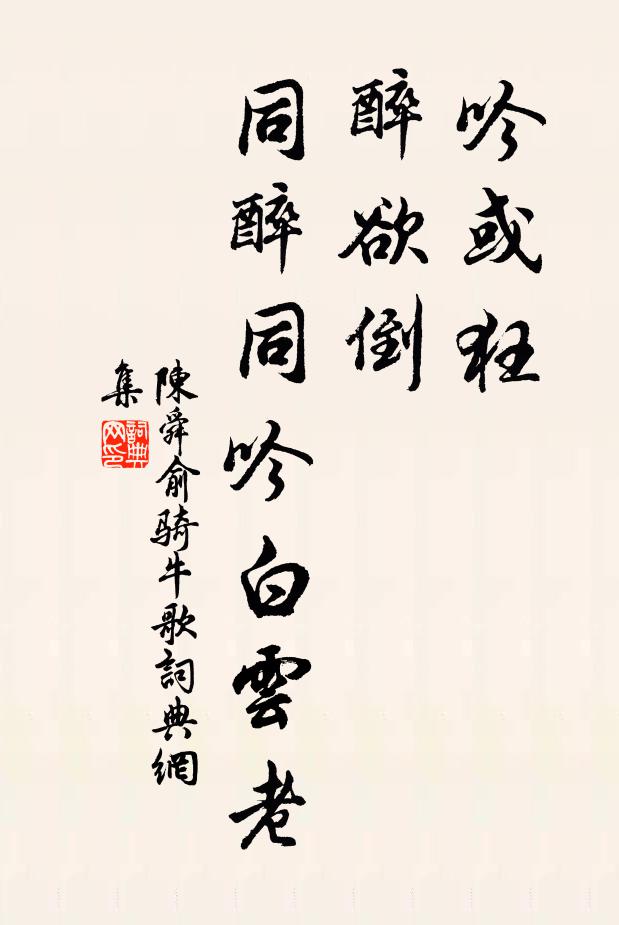 吟或狂
醉欲倒
同醉同吟白雲老
陳舜俞騎牛歌詞典網
集
詞典
网印